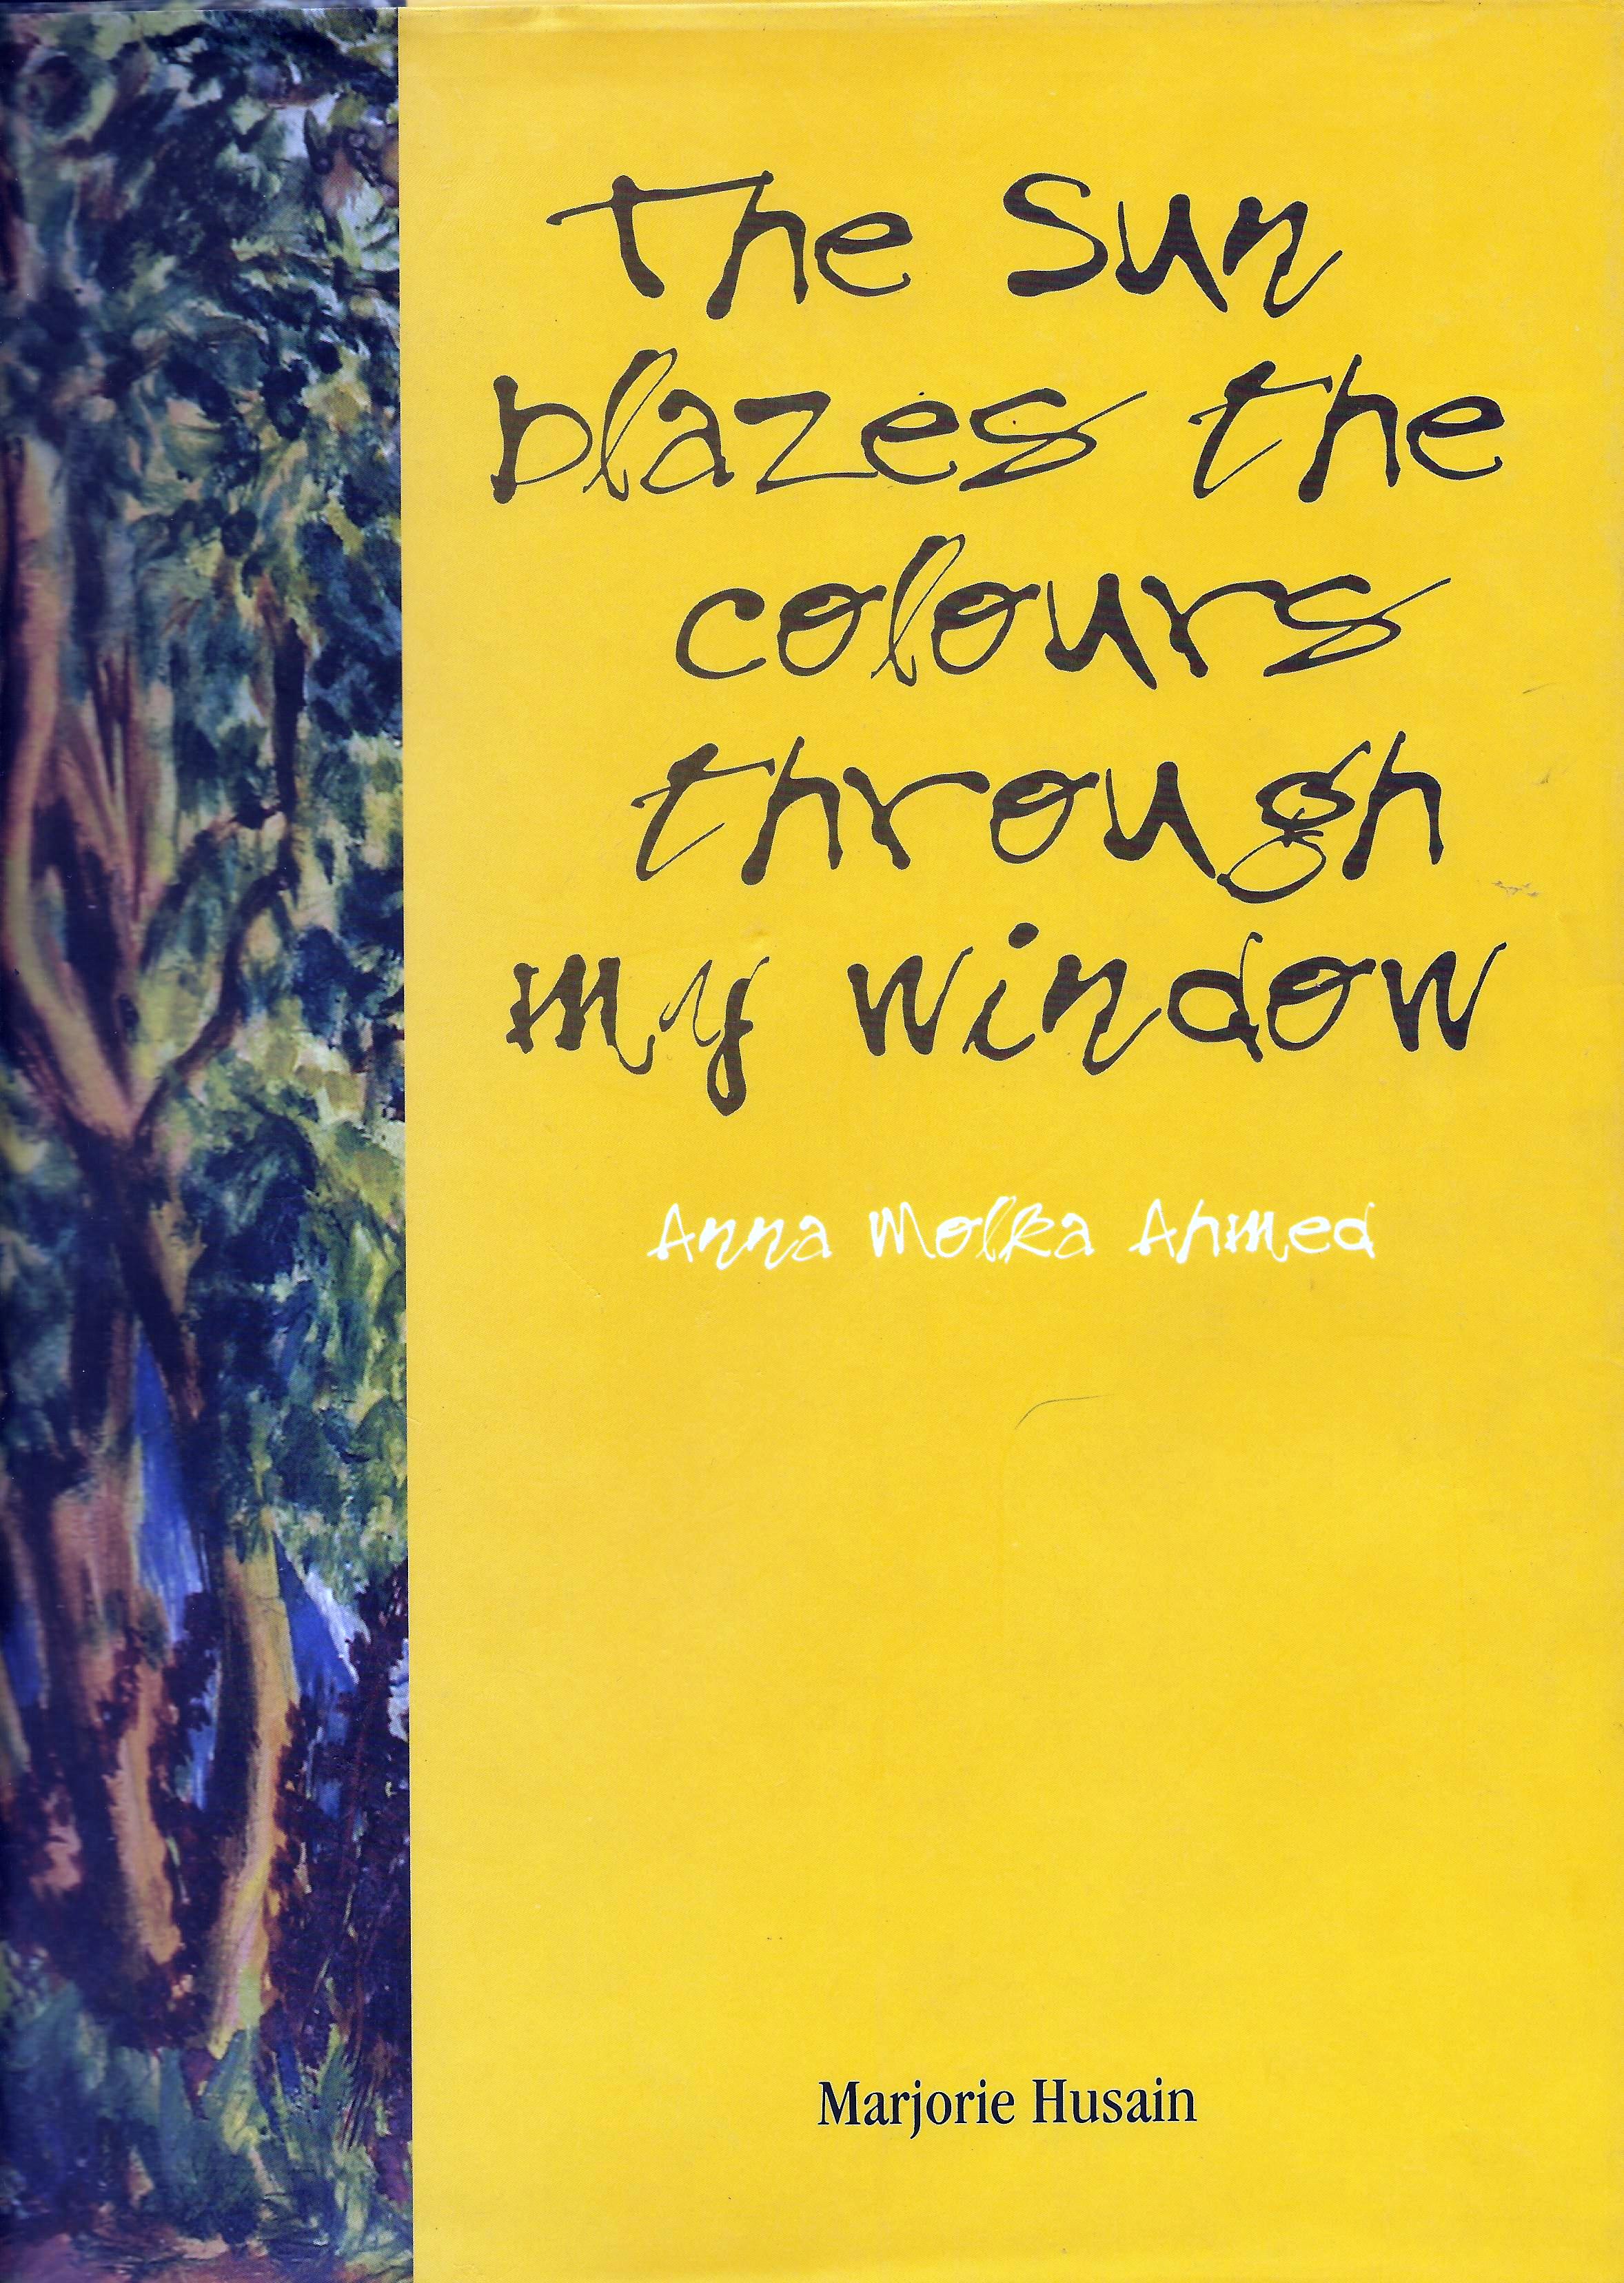 The Sun
blazes the
colours
through
my window
Anna Molka Ahmed
Marjorie Husain